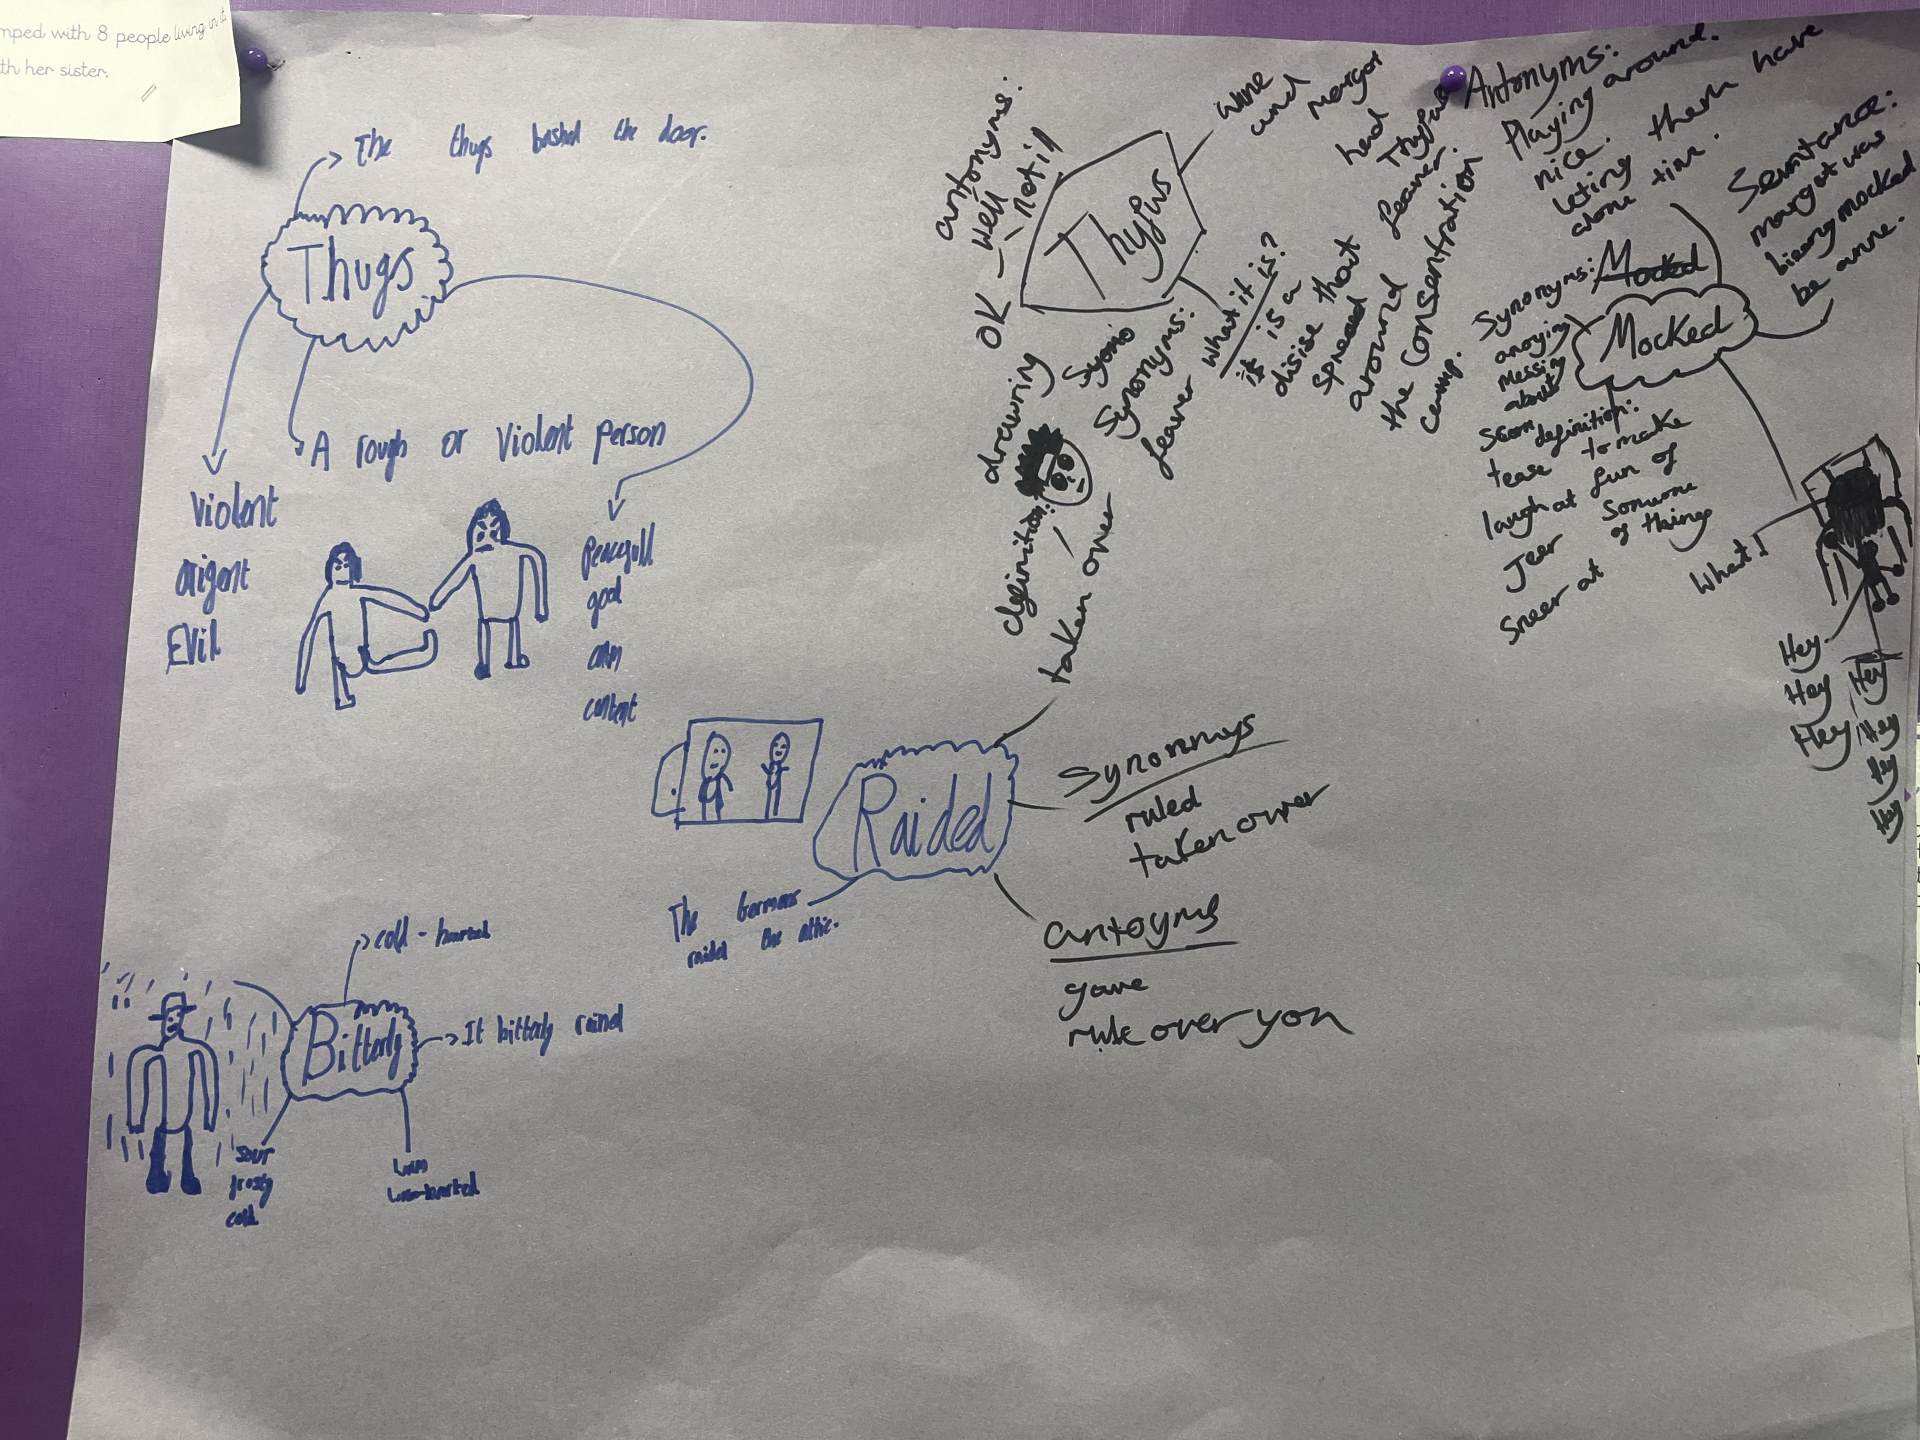 mped with 8 people living in it
th her sister.
The thugs bashed the door.
Thugs
A rough or violent person
violent
arigent
Evil
Peacefull
good
content
antonyms:
well
not ill
OK
Thyfus
anne
and
margot
had
Thyfus
feaver.
what it is?
it is a
disise that
spread
around
the consentration
camp.
Syono
Synonyms:
feaver
drawring
definition:
taken over
Antonyms:
Playing around.
nice.
leting them have
alone time.
Senntance:
margot was
bieng mocked
be anne.
Mocked
Mocked
Synonyms:
anoying
messing
about
scorn
tease
laugh at
Jeer
sneer at
definition:
to make
fun of
somone
of things
What!
Hey
Hey
Hey
Hey
Hey
Hey
Hey
Raided
Synonmys
ruled
taken over
antoyms
gave
rule over you
The Germans
raided the attic.
cold-hearted
Bitterly
It bitterly rained
sour
frosty
cold